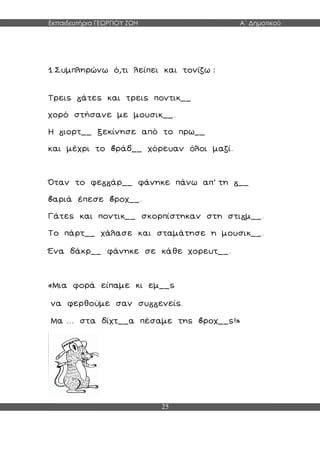 Εκπαιδευτήρια ΓΕΩΡΓΙΟΥ ΖΩΗ Α΄ Δημοτικού
1.Συμπληρώνω ό,τι λείπει και τονίζω :
Τρεις γάτες και τρεις ποντικ__
χορό στήσανε με μουσικ__.
Η γιορτ__ ξεκίνησε από το πρω__
και μέχρι το βράδ__ χόρευαν όλοι μαζί.
Όταν το φεγγάρ__ φάνηκε πάνω απ' τη γ__
βαριά έπεσε βροχ__.
Γάτες και ποντικ__ σκορπίστηκαν στη στιγμ__.
Το πάρτ__ χάλασε και σταμάτησε η μουσικ__.
Ένα δάκρ__ φάνηκε σε κάθε χορευτ__.
«Μια φορά είπαμε κι εμ__ς
να φερθούμε σαν συγγενείς.
Μα ... στα δίχτ__α πέσαμε της βροχ__ς!»
25